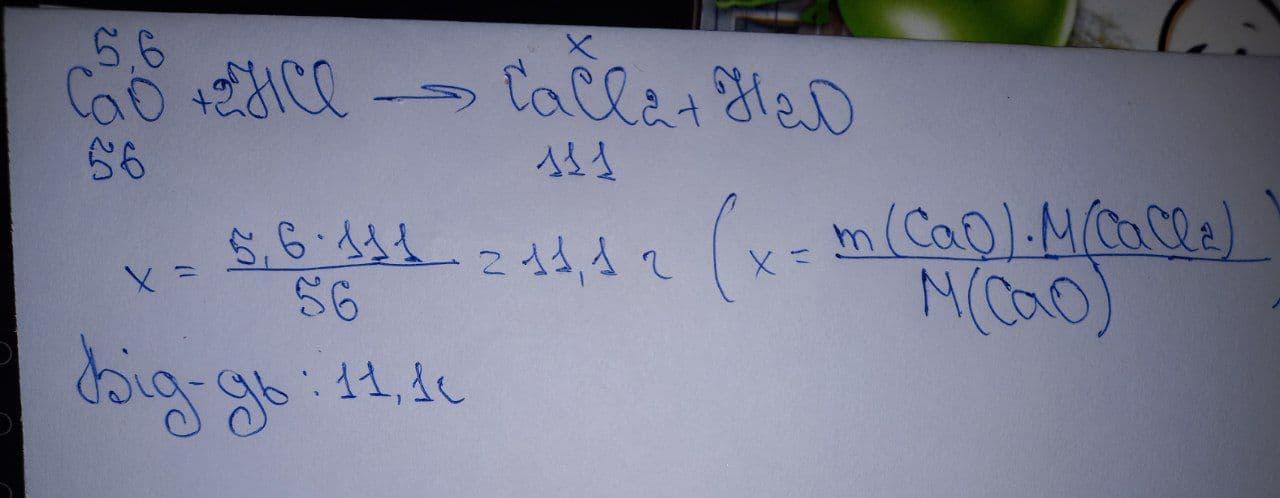 5,6 x
CaO +2HCl → CaCl2 + H2O
56 111
x = 5,6·111 / 56 = 11,1 г (x = m(CaO)·M(CaCl2) / M(CaO))
Від-дь: 11,1г